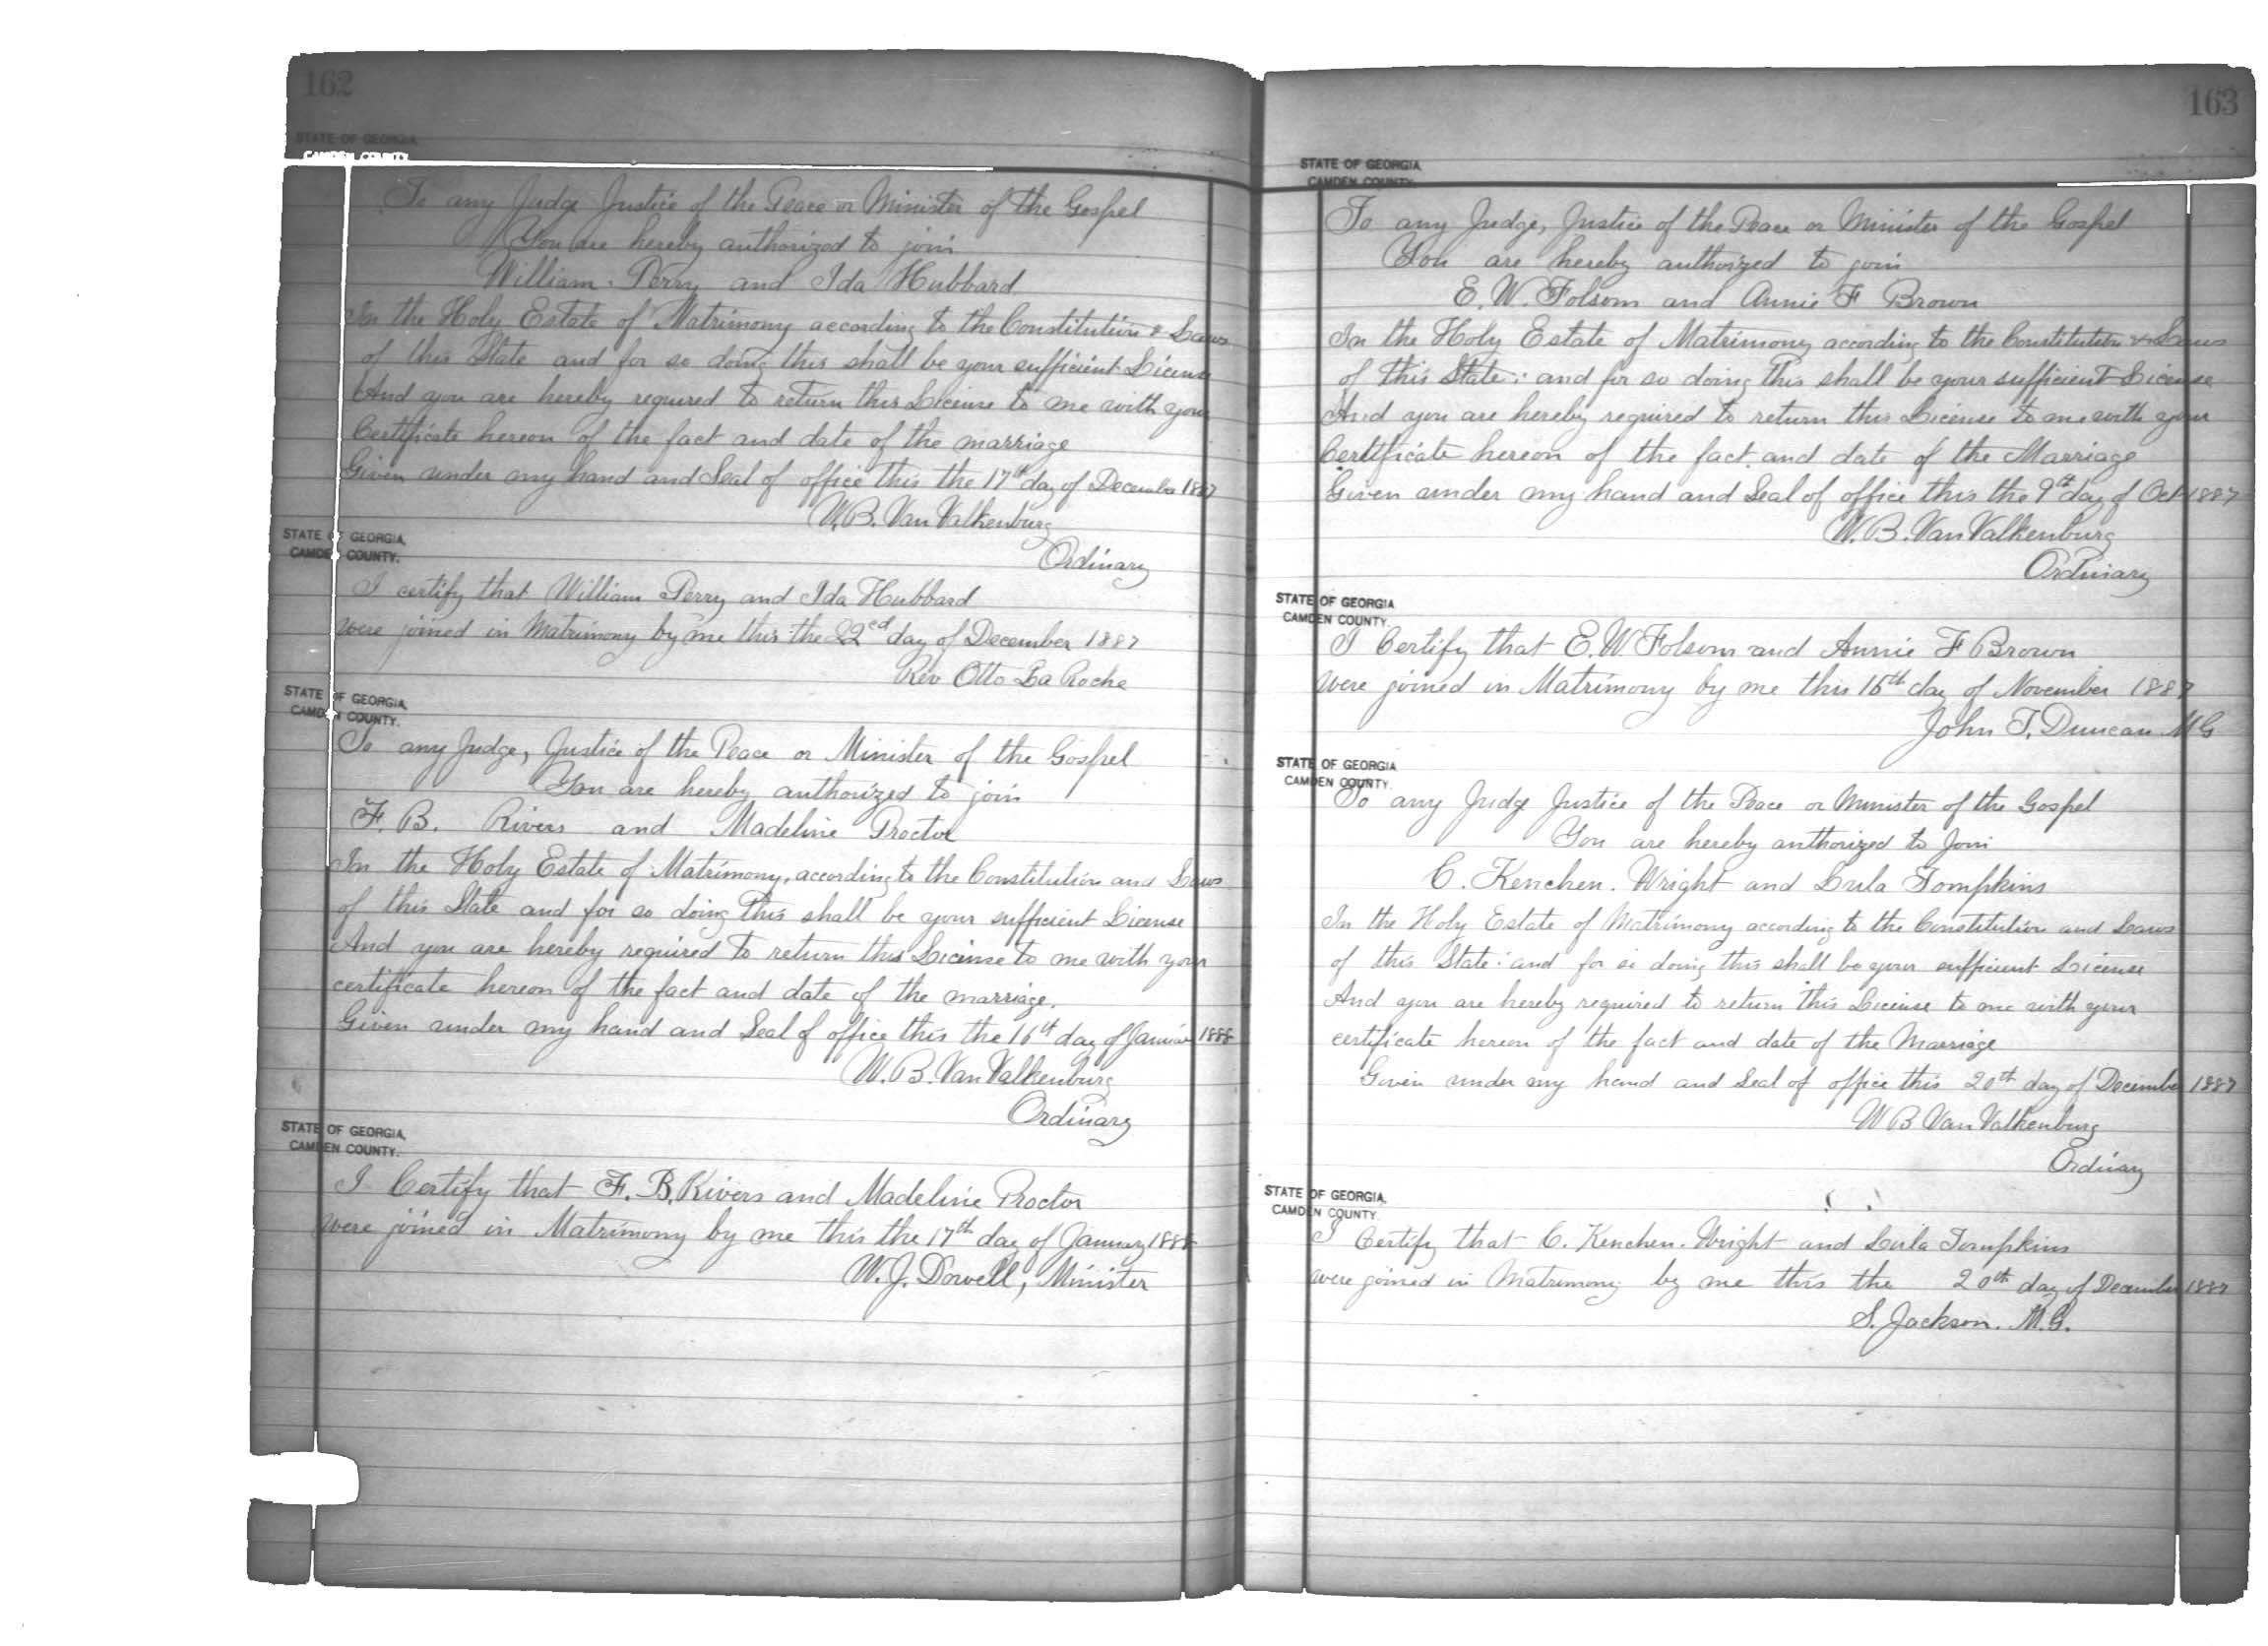 162
STATE OF GEORGIA,
CAMDEN COUNTY.
To any Judge Justice of the Peace or Minister of the Gospel
You are hereby authorized to join
William Perry and Ida Hubbard
In the Holy Estate of Matrimony according to the Constitution & Laws
of this State and for so doing this shall be your sufficient License
And you are hereby required to return this License to me with your
Certificate hereon of the fact and date of the marriage
Given under my hand and Seal of office this the 17th day of December 1887
W.B. Van Valkenburg
Ordinary
STATE OF GEORGIA,
CAMDEN COUNTY.
I certify that William Perry and Ida Hubbard
were joined in Matrimony by me this the 22ed day of December 1887
Rev Otto La Roche
STATE OF GEORGIA,
CAMDEN COUNTY.
To any Judge, Justice of the Peace or Minister of the Gospel
You are hereby authorized to join
F. B. Rivers and Madeline Proctor
In the Holy Estate of Matrimony, according to the Constitution and Laws
of this State and for so doing this shall be your sufficient License
And you are hereby required to return this License to me with your
certificate hereon of the fact and date of the marriage.
Given under my hand and Seal of office this the 16th day of 1888
W. B. Van Valkenburg
Ordinary
STATE OF GEORGIA,
CAMDEN COUNTY.
I Certify that F. B. Rivers and Madeline Proctor
were joined in Matrimony by me this the 17th day of January 1888
W. J. Dowell, Minister
163
STATE OF GEORGIA,
CAMDEN COUNTY.
To any Judge, Justice of the Peace or Minister of the Gospel
You are hereby authorized to join
E. W. Folsom and Annie F Brown
In the Holy Estate of Matrimony according to the Constitution & Laws
of this State: and for so doing this shall be your sufficient License
And you are hereby required to return this License to me with your
Certificate hereon of the fact and date of the Marriage
Given under my hand and Seal of office this the 9th day of Oct 1887
W. B. Van Valkenburg
Ordinary
STATE OF GEORGIA
CAMDEN COUNTY.
I Certify that E. W. Folsom and Annie F Brown
were joined in Matrimony by me this day of November 1887
John T. Duncan M G
STATE OF GEORGIA
CAMDEN COUNTY.
To any Judge Justice of the Peace or Minister of the Gospel
You are hereby authorized to Join
C. Kenchen. Wright and Lula Tompkins
In the Holy Estate of Matrimony according to the Constitution and Laws
of this State: and for so doing this shall be your sufficient License
And you are hereby required to return this License to me with your
certificate hereon of the fact and date of the Marriage
Given under my hand and Seal of office this 20th day of December 1887
W B Van Valkenburg
Ordinary
STATE OF GEORGIA,
CAMDEN COUNTY.
I Certify that C. Kenchen. Wright and Lula Tompkins
were joined in Matrimony by me this the 20th day of December 1887
S. Jackson. M.G.